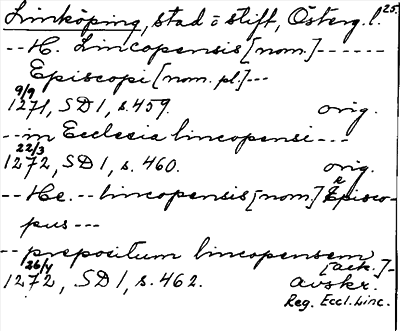 Linköping, stad o stift, Österg. l. 25.
-- H. Lincopensis [nom.] ------
Episcopi [nom. pl.] ---
9/9
1271, SD 1, s. 459. orig.
-- in Ecclesia lincopensi ---
22/3
1272, SD 1, s. 460. orig.
-- He. -- lincopensis [nom.] Episco-
pus ---
-- prepositum lincopensem
[ack.] -
26/4
1272, SD 1, s. 462. avskr.
Reg. Eccl. Linc.